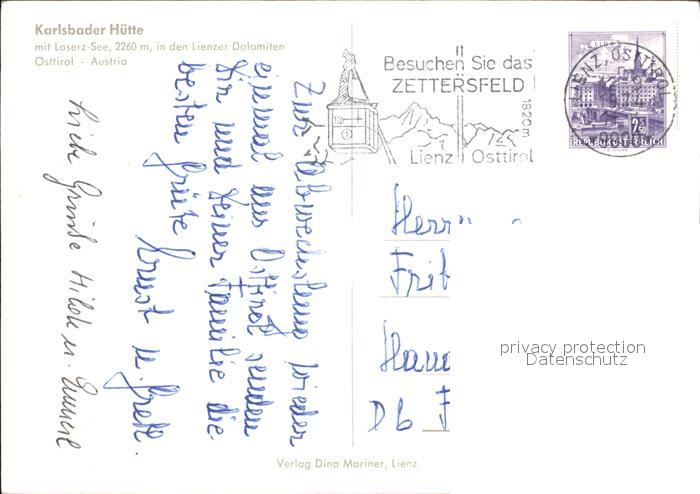 Karlsbader Hütte
mit Laserz-See, 2260 m, in den Lienzer Dolomiten
Osttirol - Austria
Besuchen Sie das
ZETTERSFELD
1820 m
Lienz Osttirol
LIENZ, OSTTIROL
REPUBLIK ÖSTERREICH
Zur Abwechslung wieder
einmal aus Osttirol senden
Dir und Deiner Familie die
besten Grüße
Ernst u. Gretl.
Liebe Grüße Hilde u.
Herrn
Frit
Db F
privacy protection
Datenschutz
Verlag Dina Mariner, Lienz